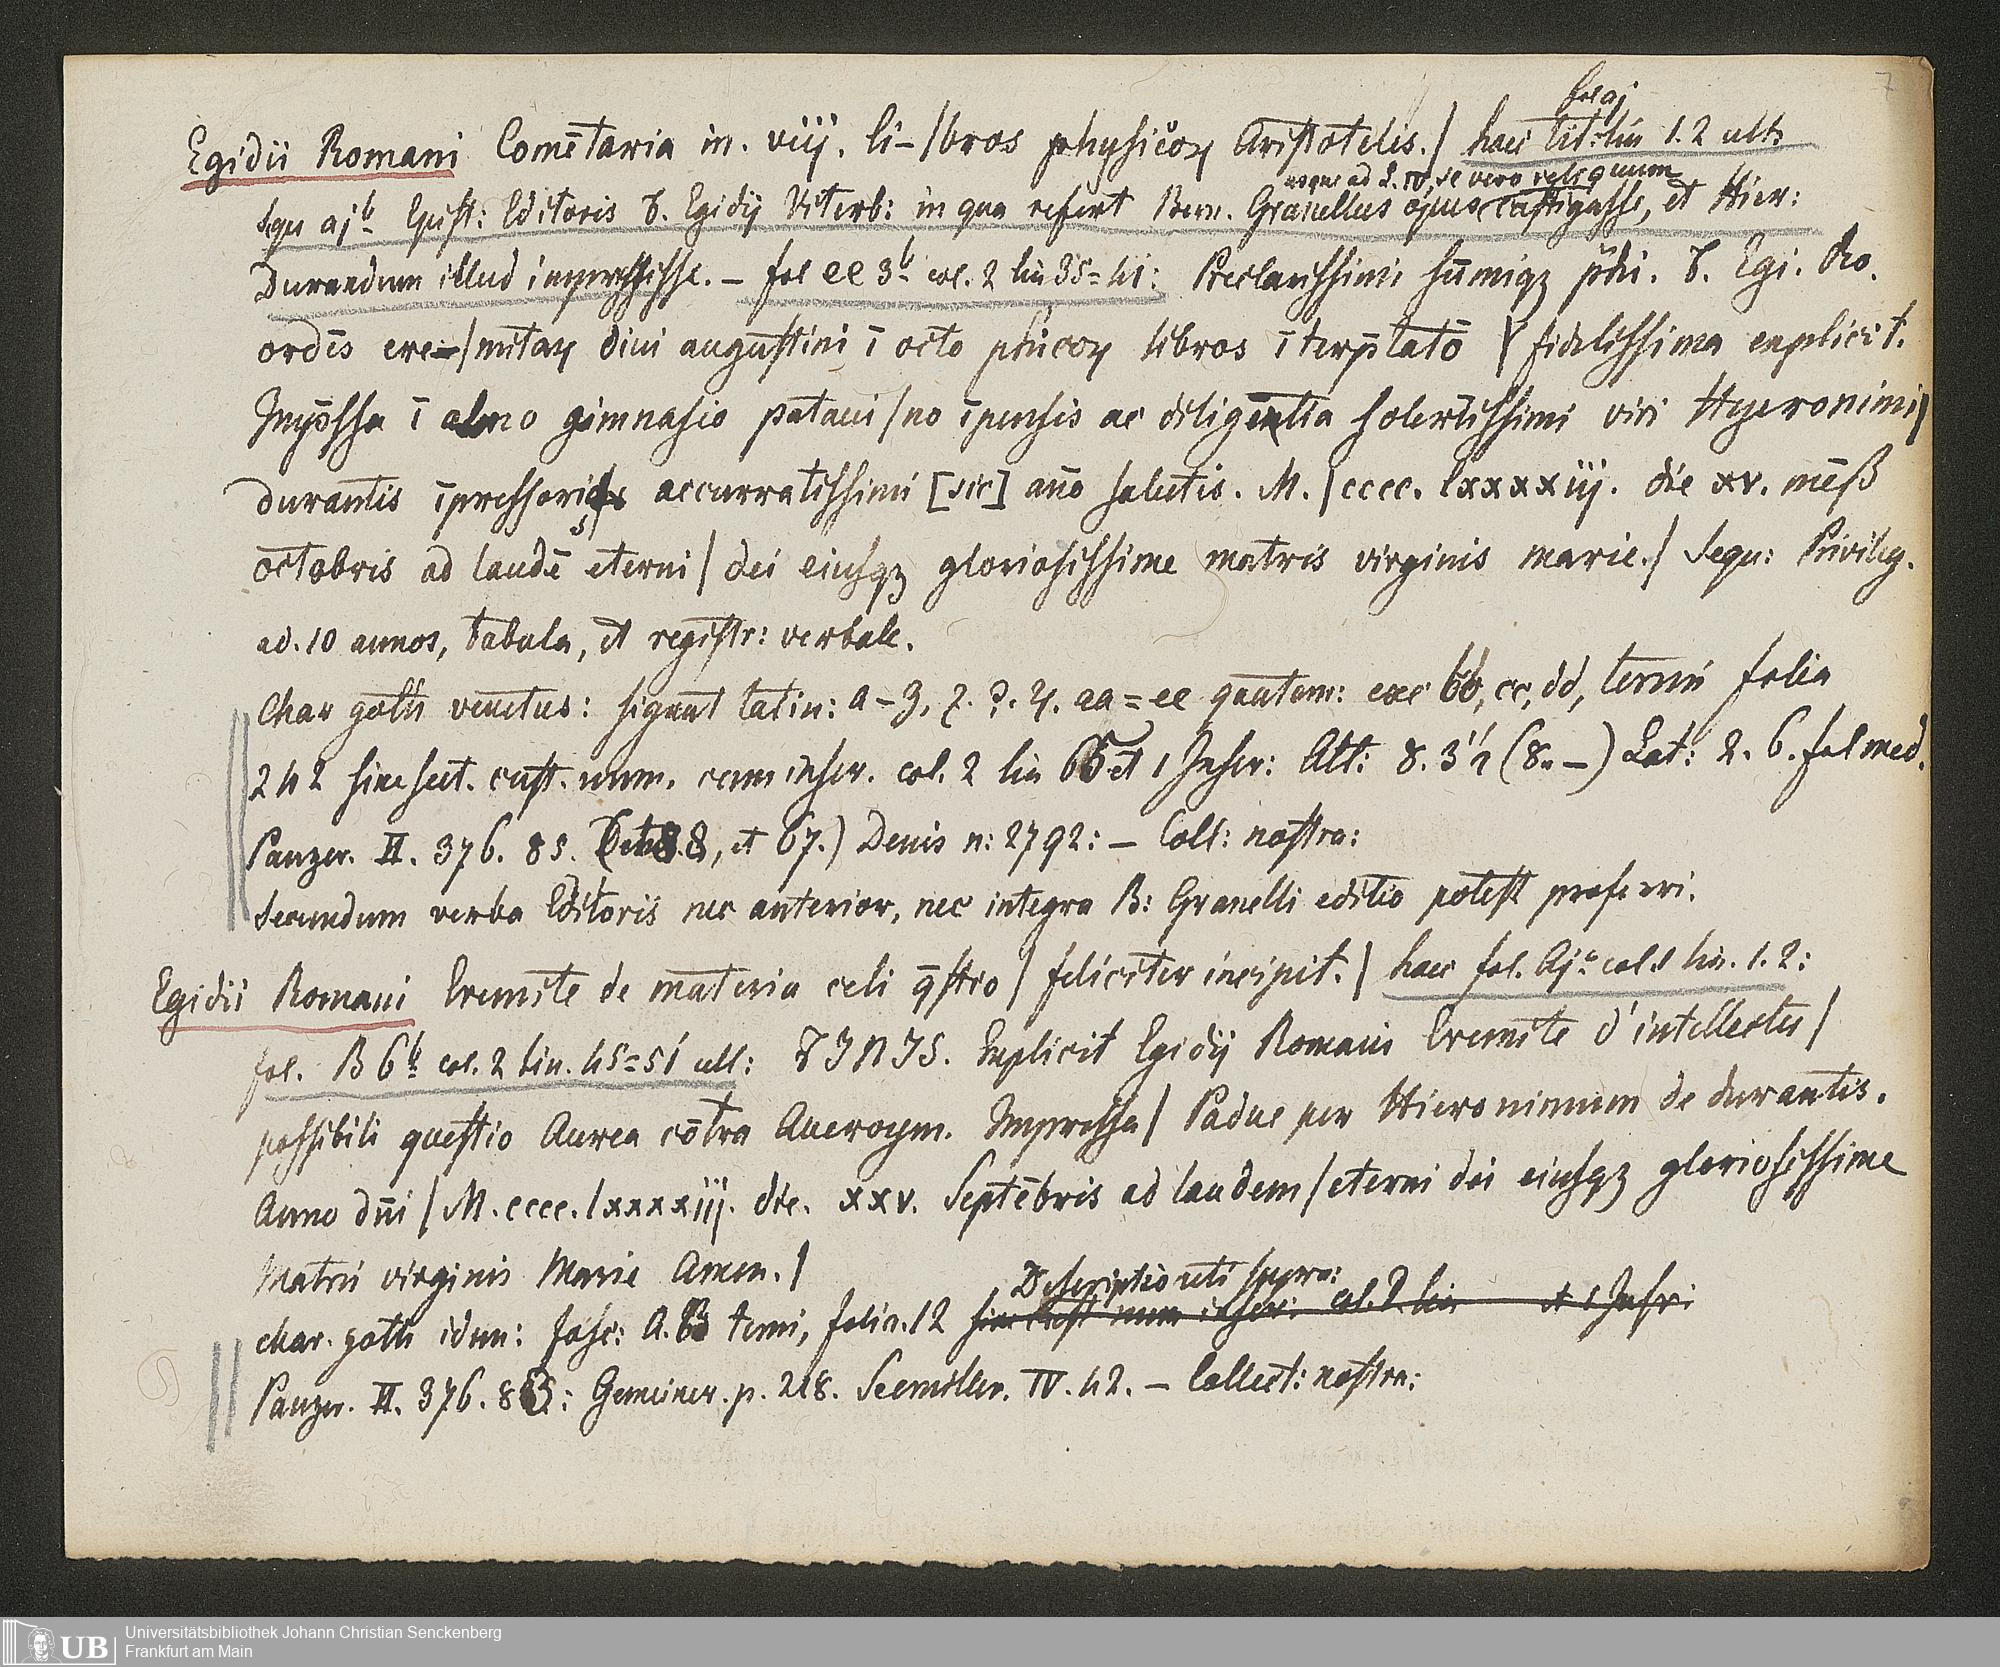 7
fol aj
Egidii Romani Comētaria in. viij. li-/bros physicoꝝ Aristotelis./ haec tit: lin 1. 2 ult:
usque ad L. IV, se vero reliquum
Sequ aj b Epist: Editoris F. Egidij Viterb: in qua refert Bern. Granellus opus castigasse, et Hier:
Durandum illud impressisse. – fol ee 3 b col. 2 lin 35=41: Preclarissimi sūmiqꝫ phi. F. Egi. Ro.
ordīs ere-/mitaꝝ diui augustini ī octo phicoꝝ libros īterp̄tatō / fidelissima explicit.
Imp̄ssa ī almo gimnasio pataui/no īpensis ac diligentia solertissimi viri Hyeronimi/
durantis īpressoris accurratissimi [sic] año salutis. M./cccc. lxxxxiij. die xv. mēß
octobris ad laudē eterni / dei eiusqꝫ gloriosissime matris virginis marie./ Sequ: Privileg.
ad. 10 annos, tabula, et registr: verbale.
Char goth venetus: signant latin: a–z, ꝛ. ?. ꝝ. aa=ee quatern: exc bb, cc, dd, terni folia
242 sine sect. cust. num. cum inscr. col. 2 lin 65 et 1 Inscr: Alt: 8. 3½ (8. –) Lat: 2. 6. fol med.
Panzer. II. 376. 85. et 67.) Denis n: 2792: – Coll: nostra:
Secundum verba Editoris nec anterior, nec integra B: Granelli editio potest proferri.
Egidii Romani Eremite de materia celi q̄stio / feliciter incipit. / haec fol. Aj a col. 1 lin. 1. 2:
fol. B 6 b col. 2 lin. 45=51 ult: FINIS. Explicit Egidij Romani Eremite d' intellectu /
possibili questio Aurea cōtra Aueroym. Impressa / Padue per Hieronimum de durantis.
Anno dñi / M. cccc. lxxxxiij. die. xxv. Septēbris ad laudem / eterni dei eiusqꝫ gloriosissime
Matris virginis Marie Amen. /
Descriptio uti supra:
char. goth idem: fasc: A. B terni, folia. 12 sine cust num inscri. col. 2 lin et 1 Inscri
Panzer. II. 376. 83: Gemeiner. p. 218. Seemiller. IV. 42. – Collect: nostra:
Universitätsbibliothek Johann Christian Senckenberg
Frankfurt am Main
UB